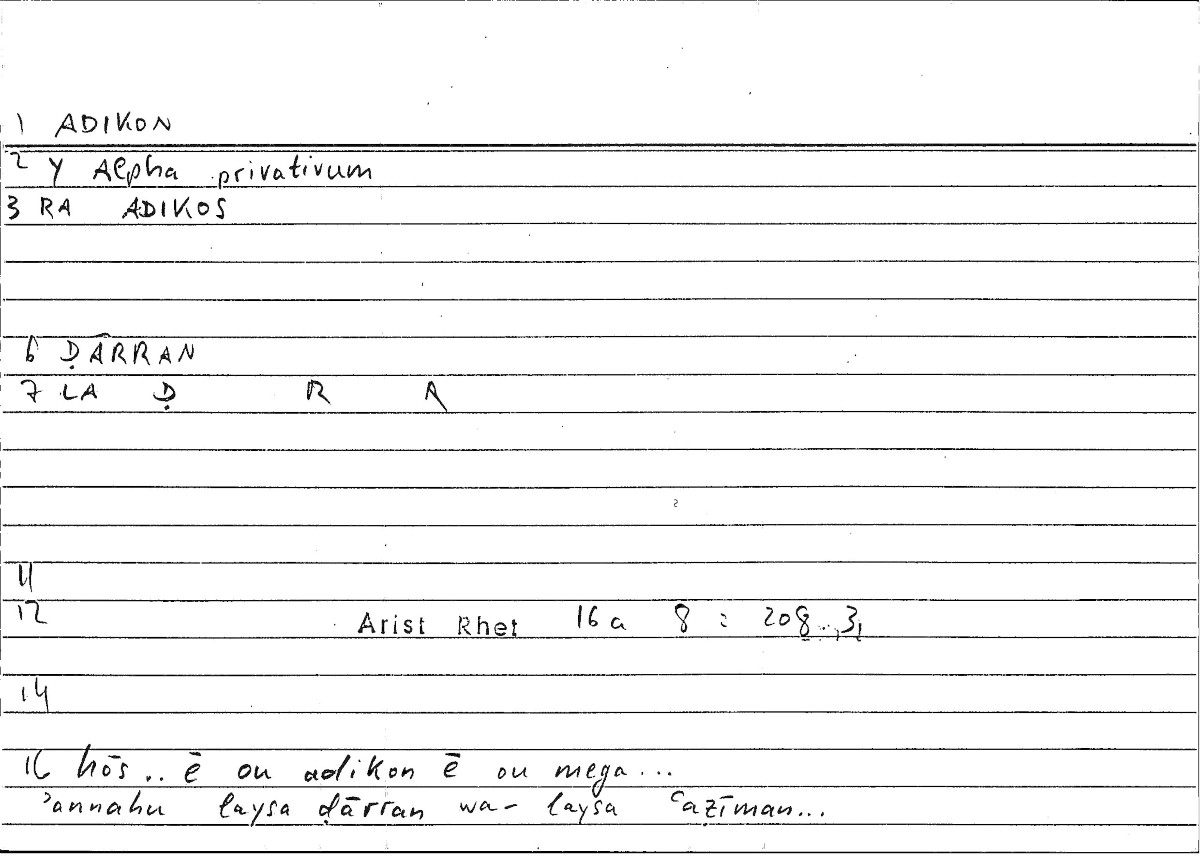 1 ADIKON
2 Y Alpha privativum
3 RA ADIKOS
6 ḌĀRRAN
7 LA Ḍ R A
11
12 Arist Rhet 16a 8 : 208
14
16 hōs .. ē ou adikon ē ou mega...
ʾannahu laysa ḍārran wa- laysa ʿaẓīman...